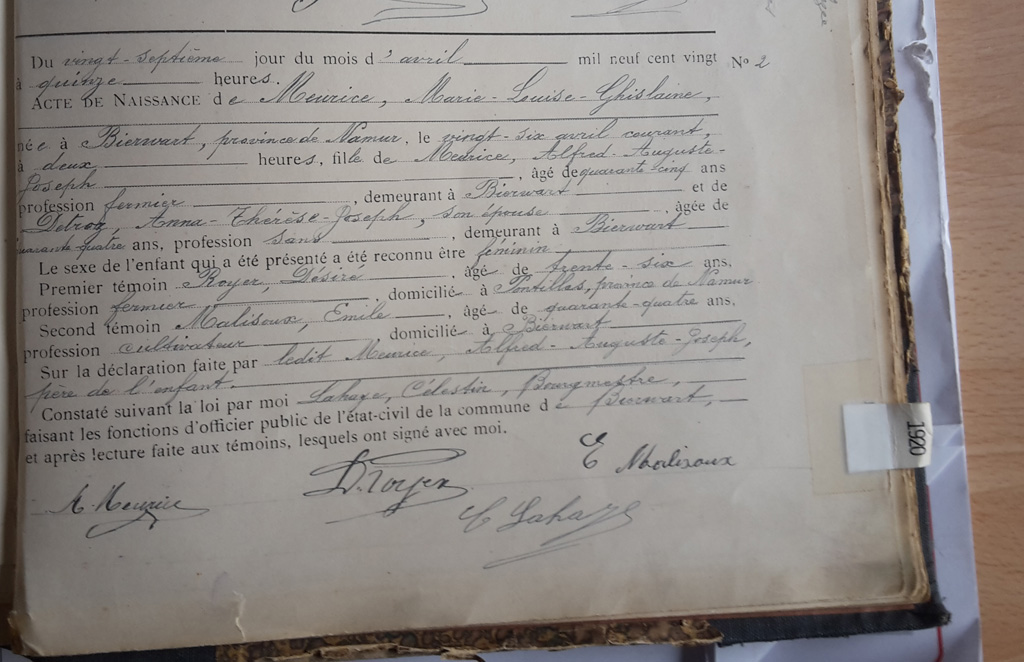 Du vingt-septième jour du mois d'avril mil neuf cent vingt
à quinze heures. N° 2
ACTE DE NAISSANCE de Meurice, Marie-Louise-Ghislaine,
née à Bierwart, province de Namur, le vingt-six avril courant,
à deux heures, fille de Meurice, Alfred-Auguste-
Joseph, âgé de quarante cinq ans
profession fermier, demeurant à Bierwart et de
Detroz, Anna-Thérèse-Joseph, son épouse, âgée de
quarante-quatre ans, profession sans, demeurant à Bierwart
Le sexe de l'enfant qui a été présenté a été reconnu être féminin
Premier témoin Royer, Désiré, âgé de trente-six ans,
profession fermier, domicilié à Pontillas, province de Namur
Second témoin Malisoux, Emile, âgé de quarante-quatre ans,
profession cultivateur, domicilié à Bierwart
Sur la déclaration faite par ledit Meurice, Alfred-Auguste-Joseph,
père de l'enfant.
Constaté suivant la loi par moi Lahaye, Célestin, Bourgmestre,
faisant les fonctions d'officier public de l'état-civil de la commune de Bierwart,
et après lecture faite aux témoins, lesquels ont signé avec moi.
E Malisoux
A. Meurice
D. Royer
C Lahaye
1920